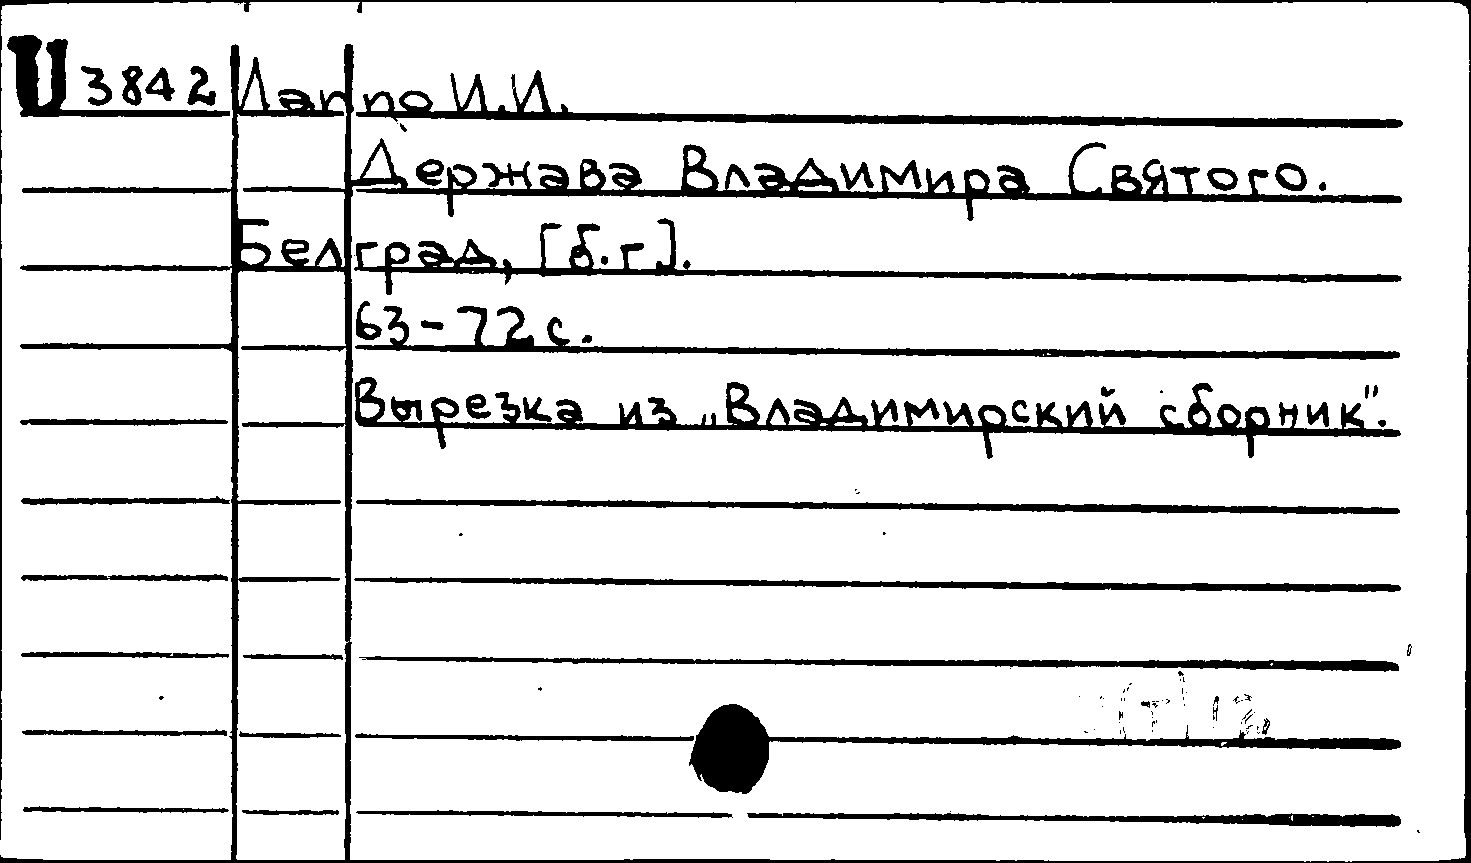 U 3842 Лаппо И.И.
Держава Владимира Святого.
Белград, [б.г.].
63-72 с.
Вырезка из „Владимирский сборник".